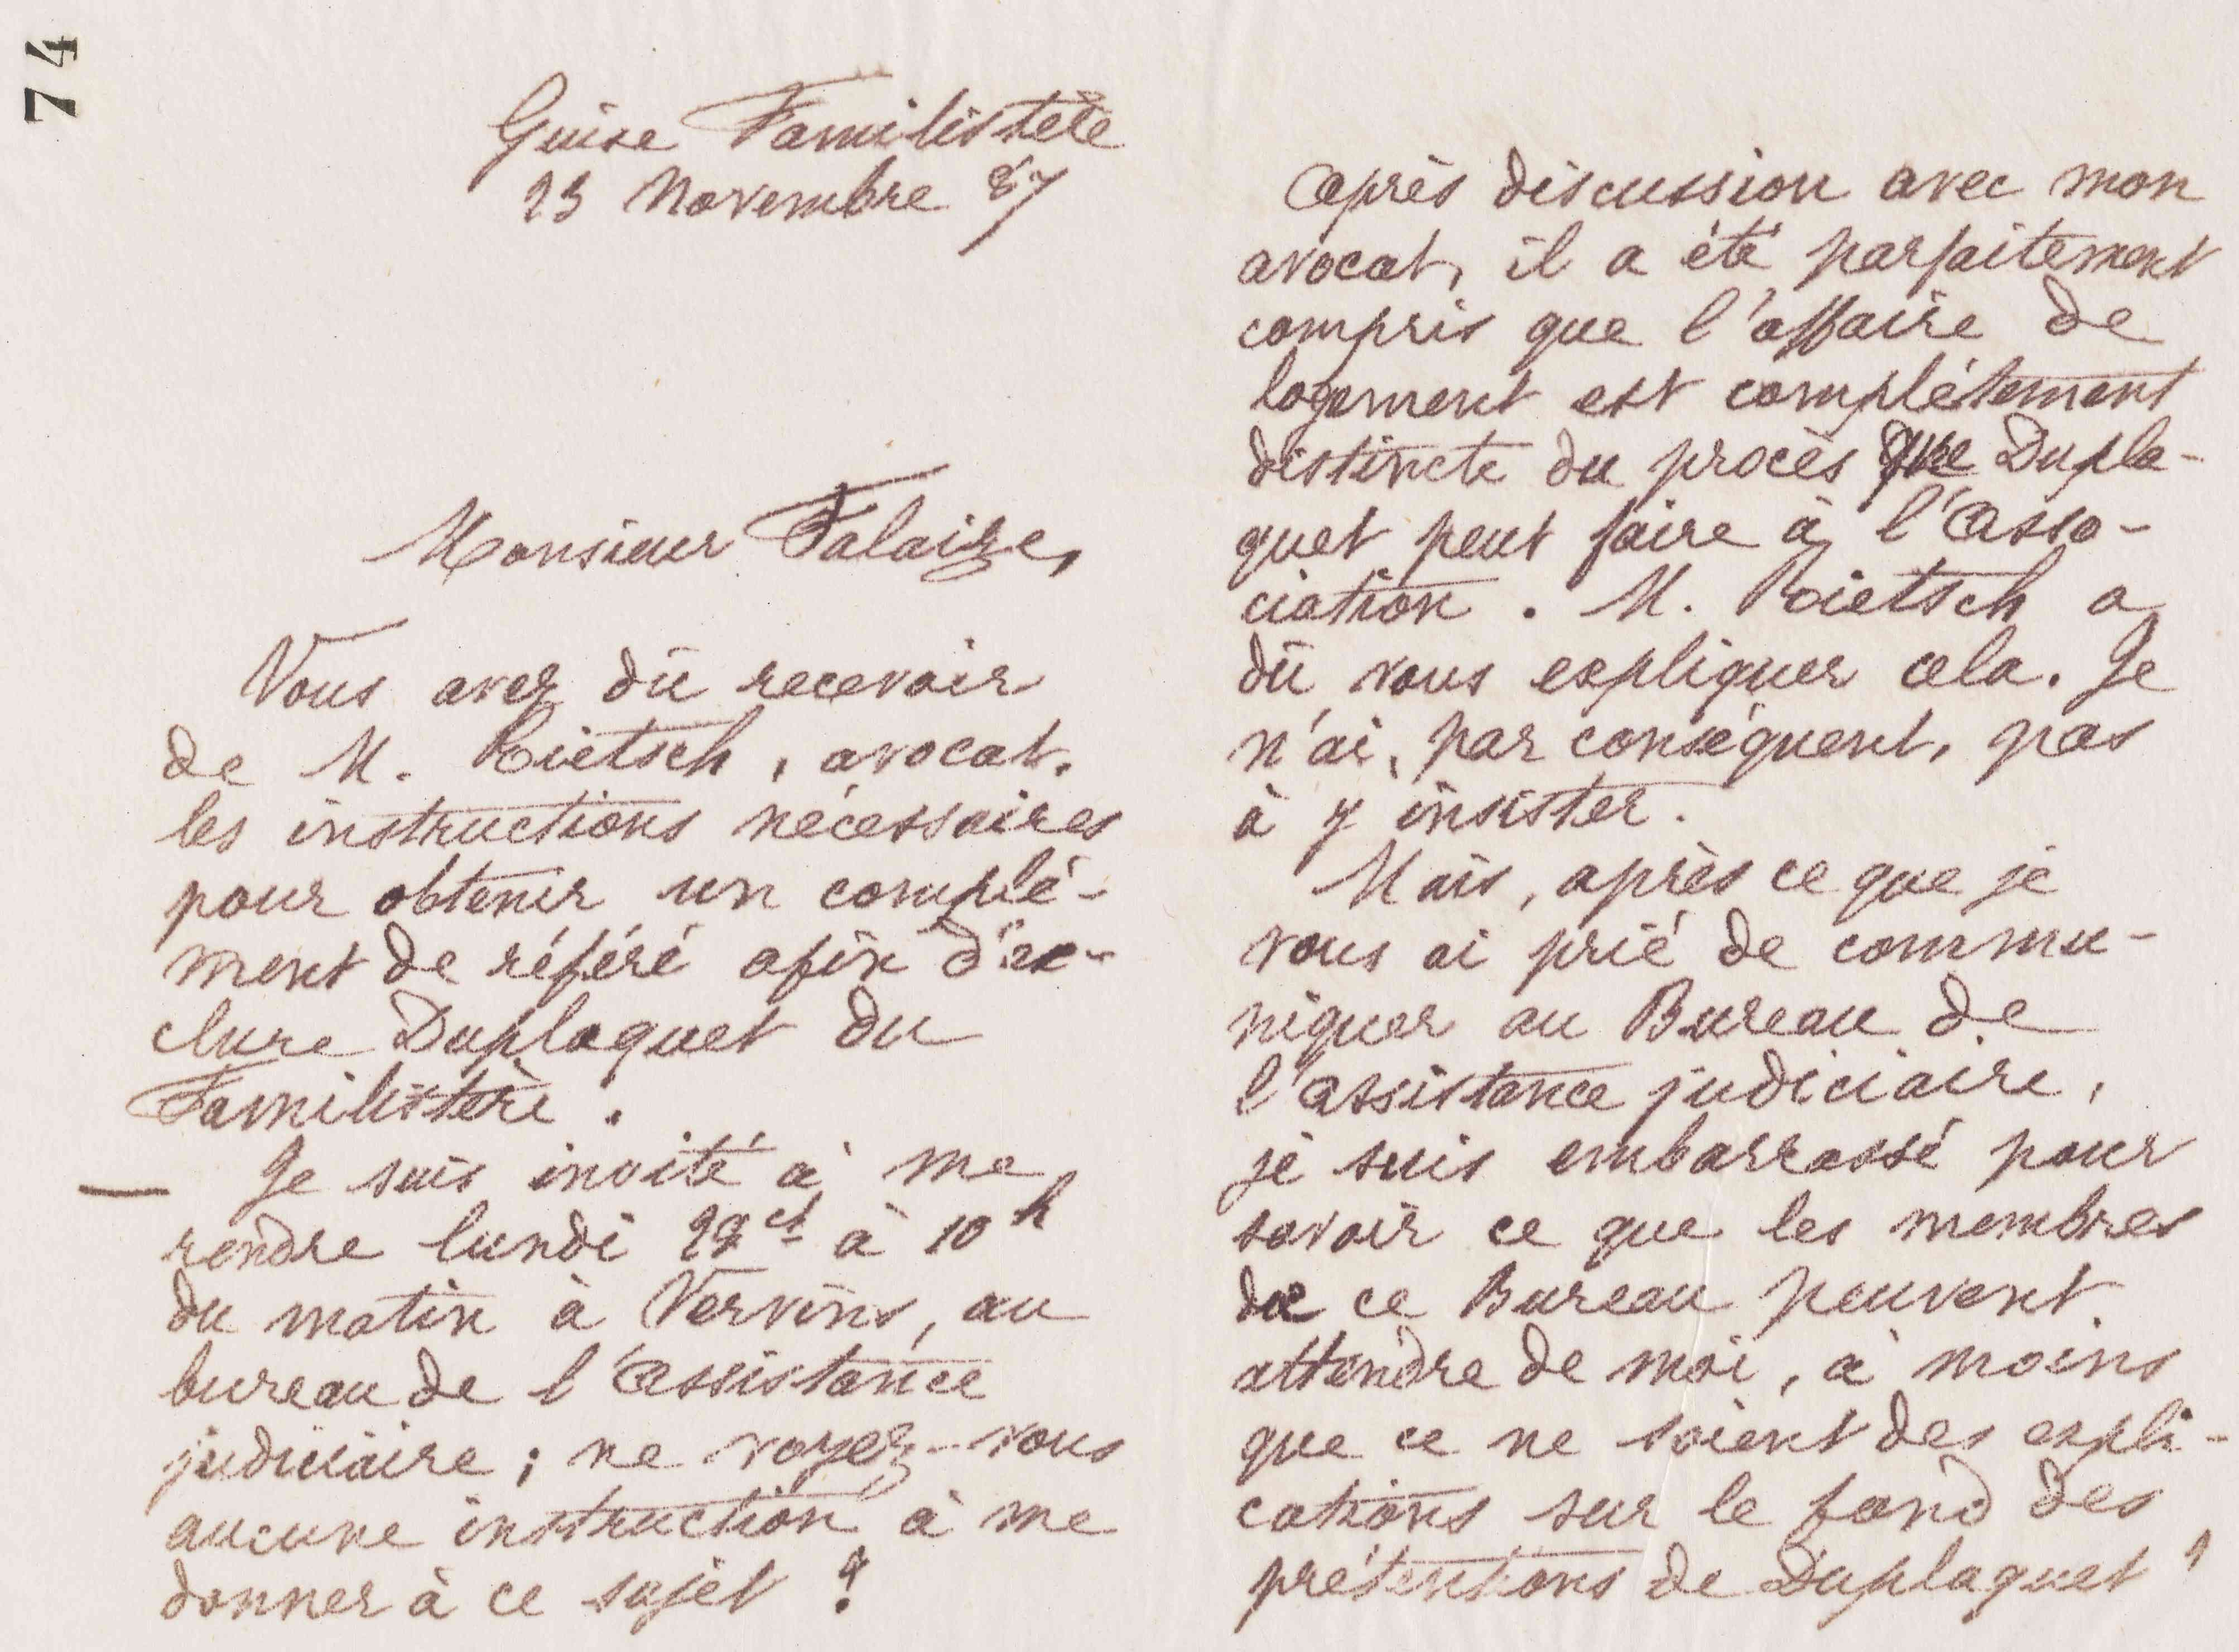 74
Guise Familistère
23 Novembre 87
Monsieur Falaize,
Vous avez dû recevoir
de M. Rietsch, avocat,
les instructions nécessaires
pour obtenir un complé-
ment de référé afin d'ex-
clure Duplaquet du
Familistère.
— Je suis invité à me
rendre lundi 28 ct à 10 h
du matin à Vervins, au
bureau de l'Assistance
judiciaire ; ne voyez-vous
aucune instruction à me
donner à ce sujet ?
Après discussion avec mon
avocat, il a été parfaitement
compris que l'affaire de
logement est complétement
distincte du procès que Dupla-
quet peut faire à l'Asso-
ciation. M. Rietsch a
dû vous expliquer cela. Je
n'ai, par conséquent, pas
à y insister.
Mais, après ce que je
vous ai prié de commu-
niquer au Bureau de
l'assistance judiciaire,
je suis embarrassé pour
savoir ce que les membres
de ce Bureau peuvent
attendre de moi, à moins
que ce ne soient des expli-
cations sur le fond des
prétentions de Duplaquet ?